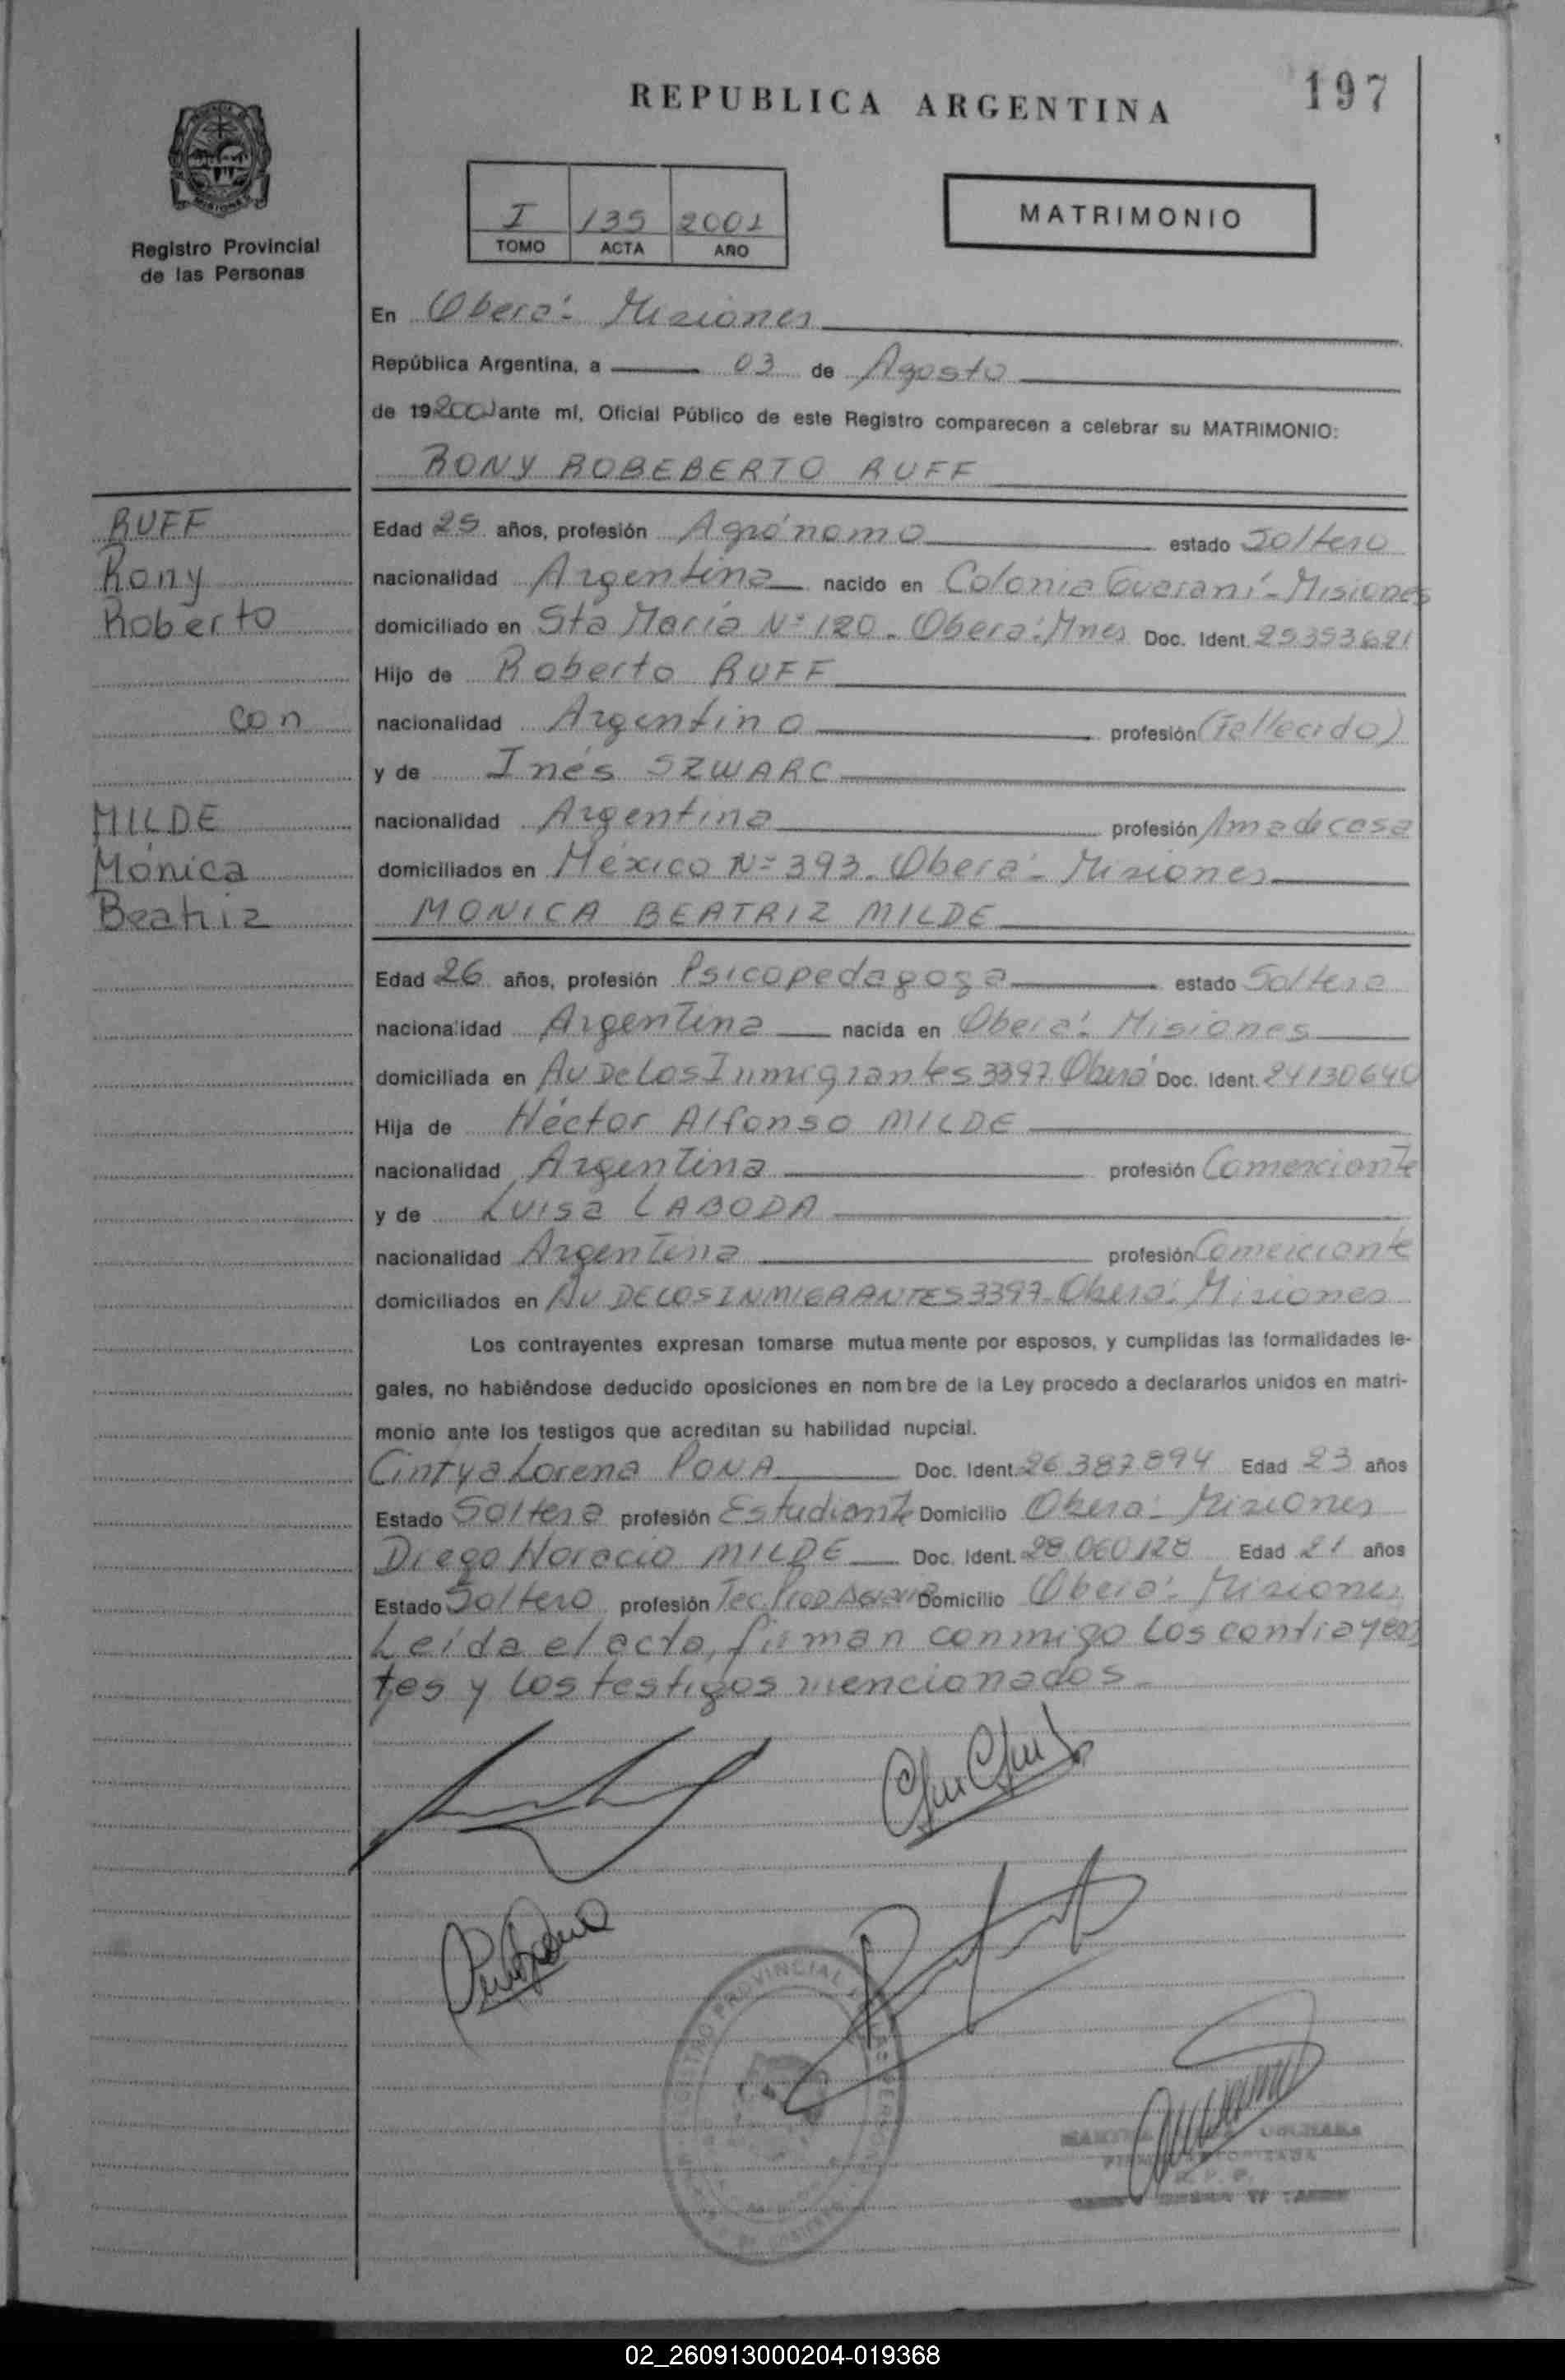 REPUBLICA ARGENTINA
197
I 135 2001
TOMO ACTA AÑO
MATRIMONIO
Registro Provincial
de las Personas
En Oberá - Misiones
República Argentina, a 03 de Agosto
de 192001 ante mí, Oficial Público de este Registro comparecen a celebrar su MATRIMONIO:
RONY ROBEBERTO RUFF
RUFF
Rony
Roberto
con
MILDE
Mónica
Beatriz
Edad 25 años, profesión Agrónomo estado Soltero
nacionalidad Argentina nacido en Colonia Guaraní - Misiones
domiciliado en Sta María Nº 120 - Oberá - Mnes Doc. Ident. 25353621
Hijo de Roberto RUFF
nacionalidad Argentino profesión (Fallecido)
y de Inés SZWARC
nacionalidad Argentina profesión Ama de casa
domiciliados en México Nº 393 - Oberá - Misiones
MONICA BEATRIZ MILDE
Edad 26 años, profesión Psicopedagoga estado Soltera
nacionalidad Argentina nacida en Oberá - Misiones
domiciliada en Av De Los Inmigrantes 3397 Oberá Doc. Ident. 24130640
Hija de Héctor Alfonso MILDE
nacionalidad Argentina profesión Comerciante
y de Luisa LABODA
nacionalidad Argentina profesión Comerciante
domiciliados en AV DE LOS INMIGRANTES 3397 - Oberá - Misiones
Los contrayentes expresan tomarse mutuamente por esposos, y cumplidas las formalidades le-
gales, no habiéndose deducido oposiciones en nombre de la Ley procedo a declararlos unidos en matri-
monio ante los testigos que acreditan su habilidad nupcial.
Cintya Lorena PONA Doc. Ident. 26387894 Edad 23 años
Estado Soltera profesión Estudiante Domicilio Oberá - Misiones
Diego Horacio MILDE Doc. Ident. 28060128 Edad 21 años
Estado Soltero profesión Tec Prod Domicilio Oberá - Misiones
Leída el acta, firman conmigo los contrayen
tes y los testigos mencionados.
02_260913000204-019368